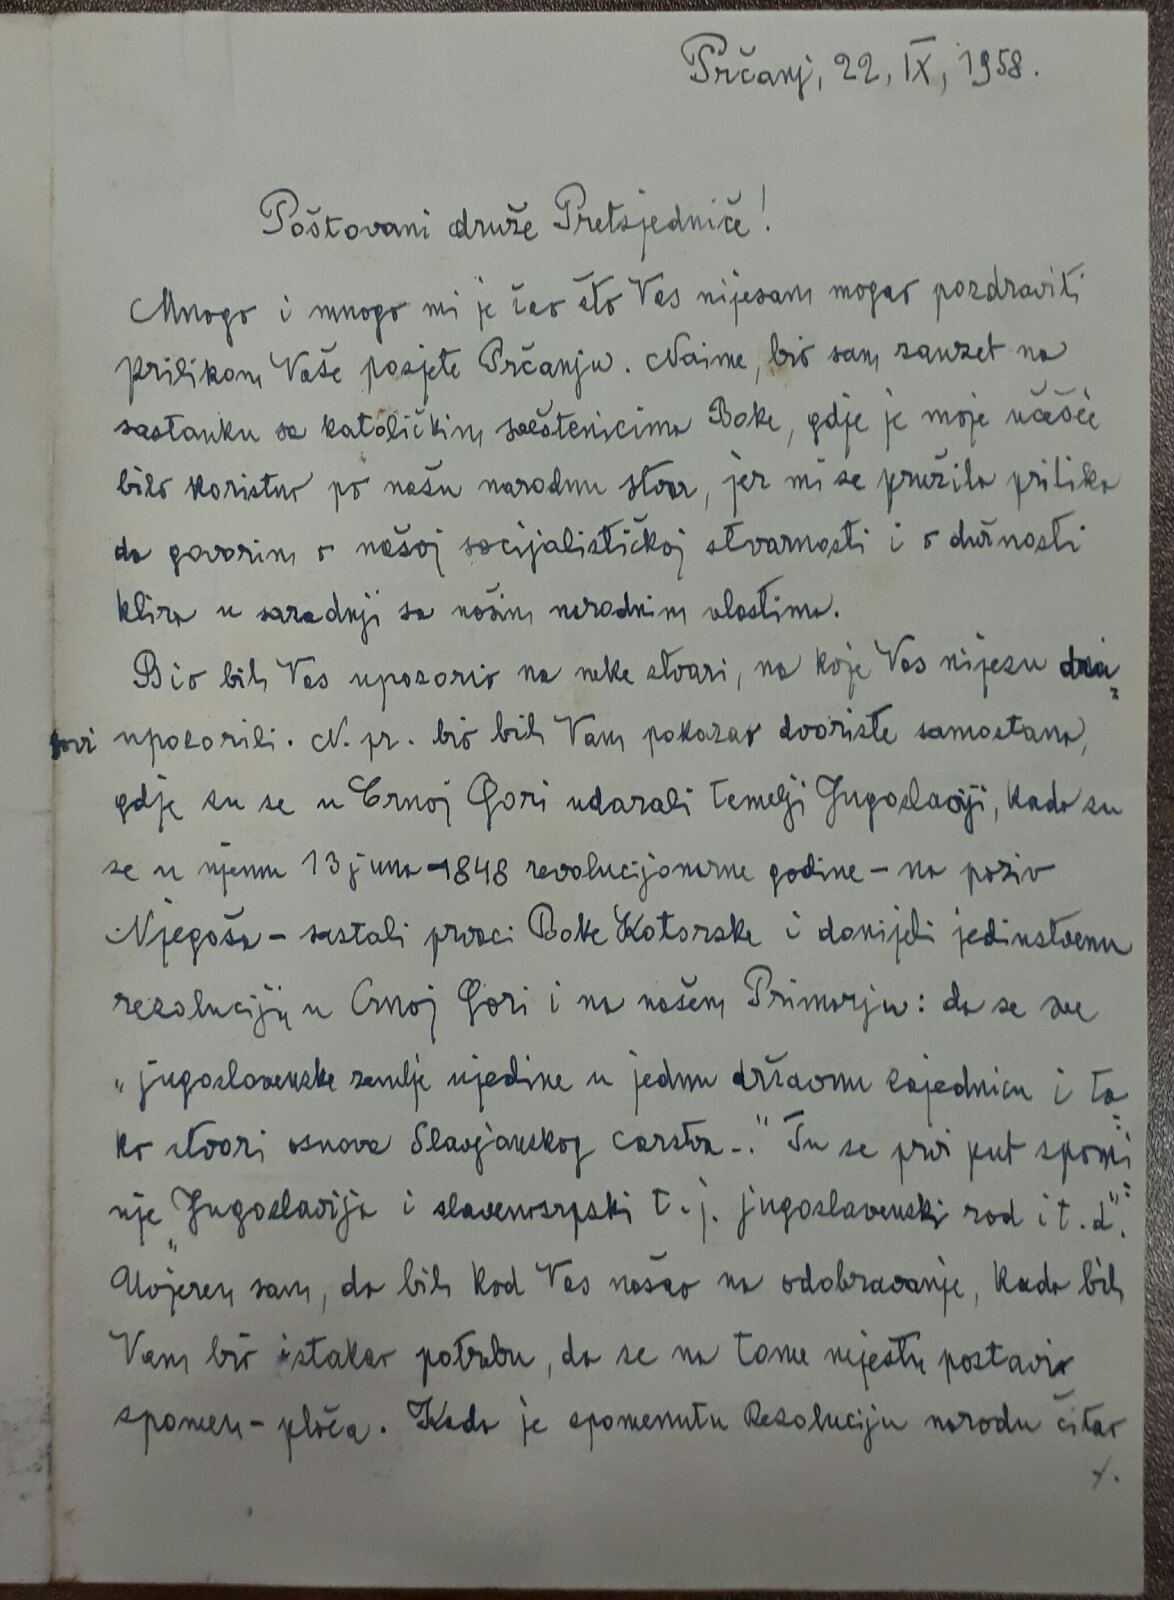 Prčanj, 22, IX, 1958.
Poštovani druže Pretsjedniče!
Mnogo i mnogo mi je žao što Vas nijesam mogao pozdraviti
prilikom Vaše posjete Prčanju. Naime, bio sam zauzet na
sastanku sa katoličkim sveštenicima Boke, gdje je moje učešće
bilo korisno po našu narodnu stvar, jer mi se pružila prilika
da govorim o našoj socijalističkoj stvarnosti i o dužnosti
klira u saradnji sa našim narodnim vlastima.
Bio bih Vas upozorio na neke stvari, na koje Vas nijesu
upozorili. N. pr. bio bih Vam pokazao dvorište samostana,
gdje su se u Crnoj Gori udarali temelji Jugoslaviji, kada su
se u njemu 13 juna 1848 revolucijonarne godine – na poziv
Njegoša – sastali prvaci Boke Kotorske i donijeli jedinstvenu
rezoluciju u Crnoj Gori i na našem Primorju: da se sve
„jugoslavenske zemlje ujedine u jednu državnu zajednicu i ta-
ko stvori osnova Slavjanskog carstva..." Tu se prvi put spomi-
nje „Jugoslavija i slavenosrpski t. j. jugoslavenski rod i t. d".
Uvjeren sam, da bih kod Vas našao na odobravanje, kada bih
Vam bio istakao potrebu, da se na tome mjestu postavi
spomen-ploča. Kada je spomenutu Rezoluciju narodu čitao
./.